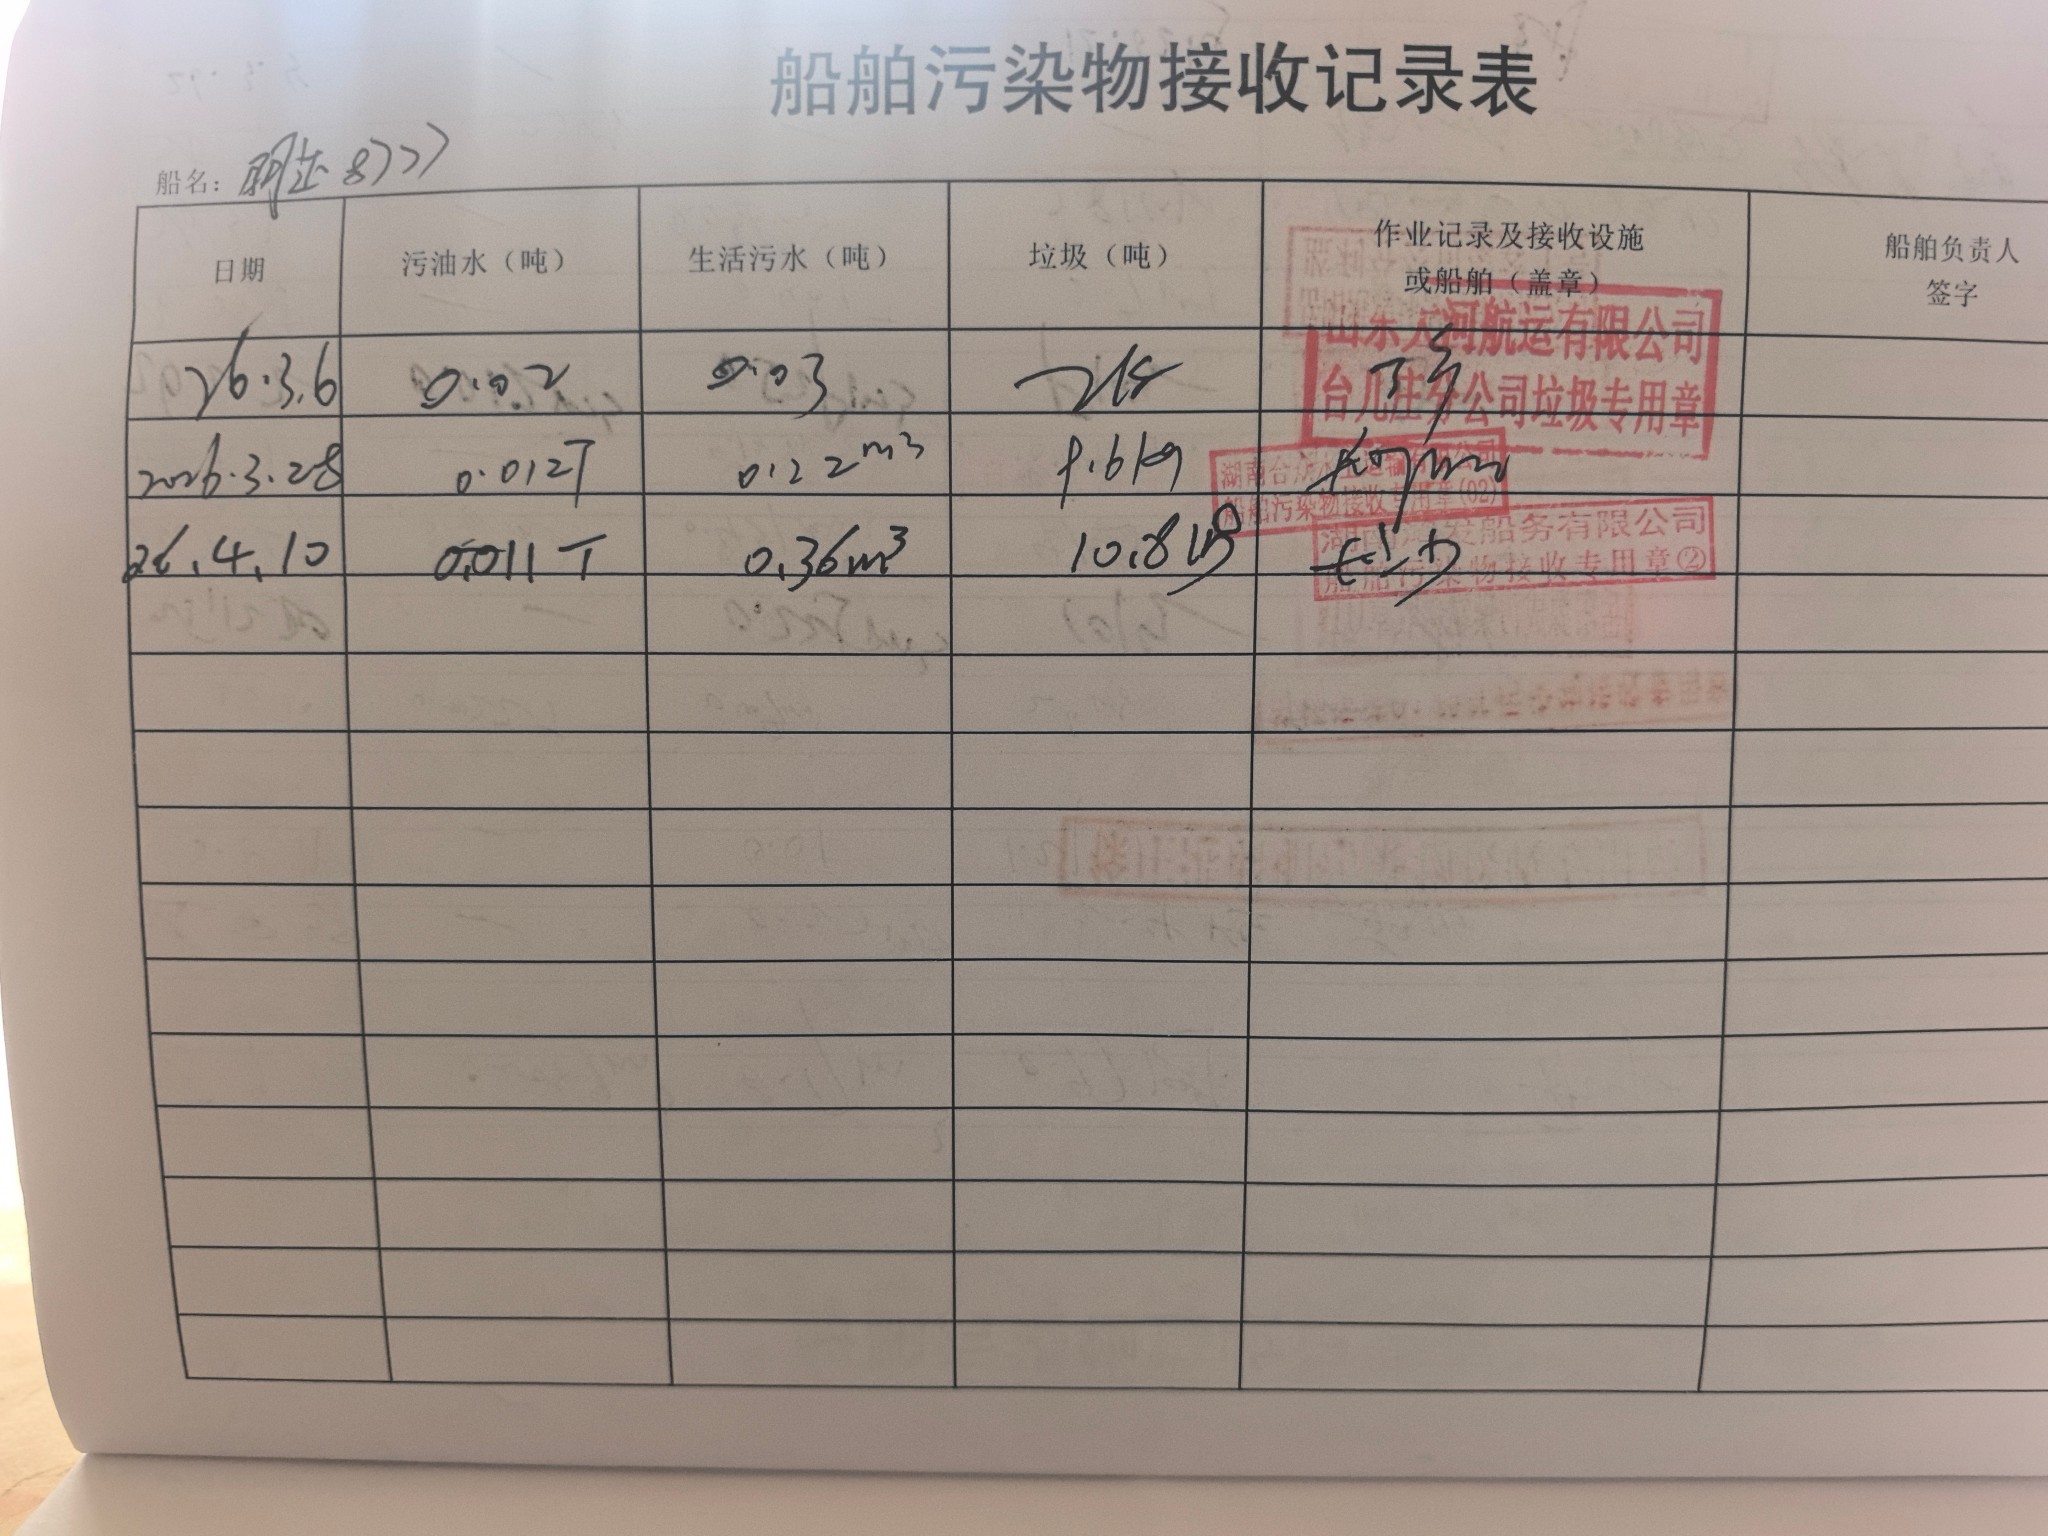 船舶污染物接收记录表
船名：
日期 污油水（吨） 生活污水（吨） 垃圾（吨） 作业记录及接收设施或船舶（盖章） 船舶负责人签字
26.3.6 0.02 0.03
山东天河航运有限公司
台儿庄分公司垃圾专用章
2026.3.28 0.012T 0.22m³ 9.6kg
湖南台
船舶污染物接收专用章(02)
26.4.10 0.011T 0.36m³ 10.8kg
发船务有限公司
船舶污染物接收专用章②